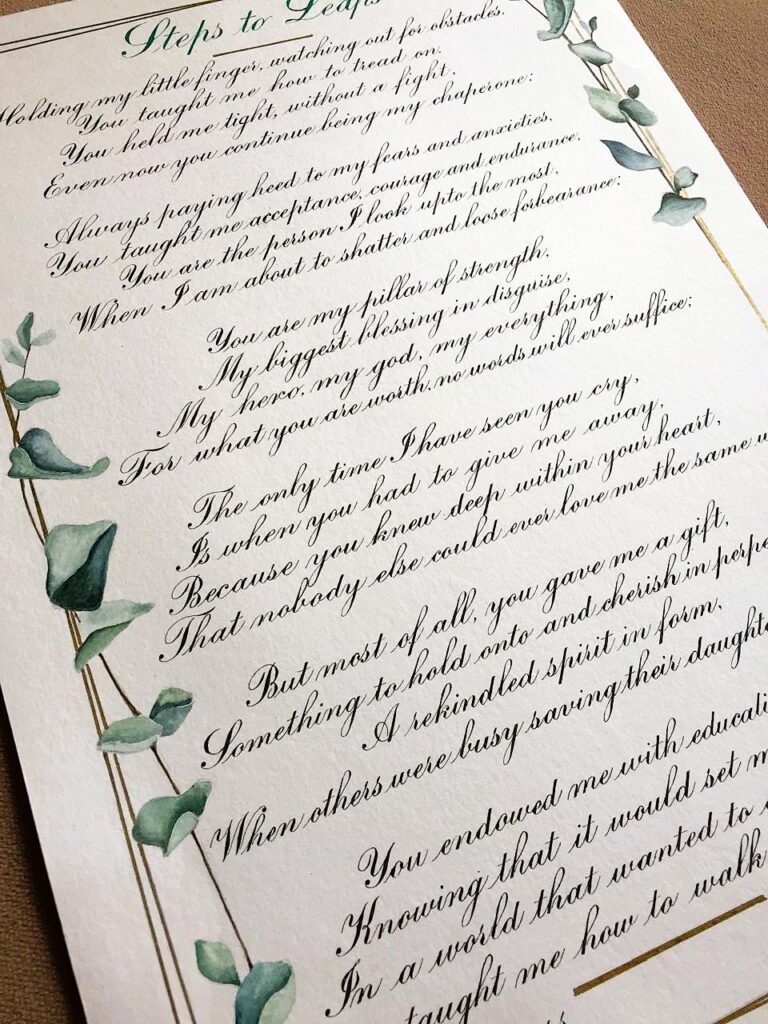 Steps to Leaps
Holding my little finger, watching out for obstacles.
You taught me how to tread on.
You held me tight, without a fight,
Even now you continue being my chaperone;
Always paying heed to my fears and anxieties,
You taught me acceptance, courage and endurance.
You are the person I look upto the most,
When I am about to shatter and loose forbearance;
You are my pillar of strength,
My biggest blessing in disguise,
My hero, my god, my everything,
For what you are worth, no words will ever suffice;
The only time I have seen you cry,
Is when you had to give me away,
Because you knew deep within your heart,
That nobody else could ever love me the same
But most of all, you gave me a gift,
Something to hold onto and cherish in
A rekindled spirit in form,
When others were busy saving their
You endowed me with
Knowing that it would set
In a world that wanted to
taught me how to walk